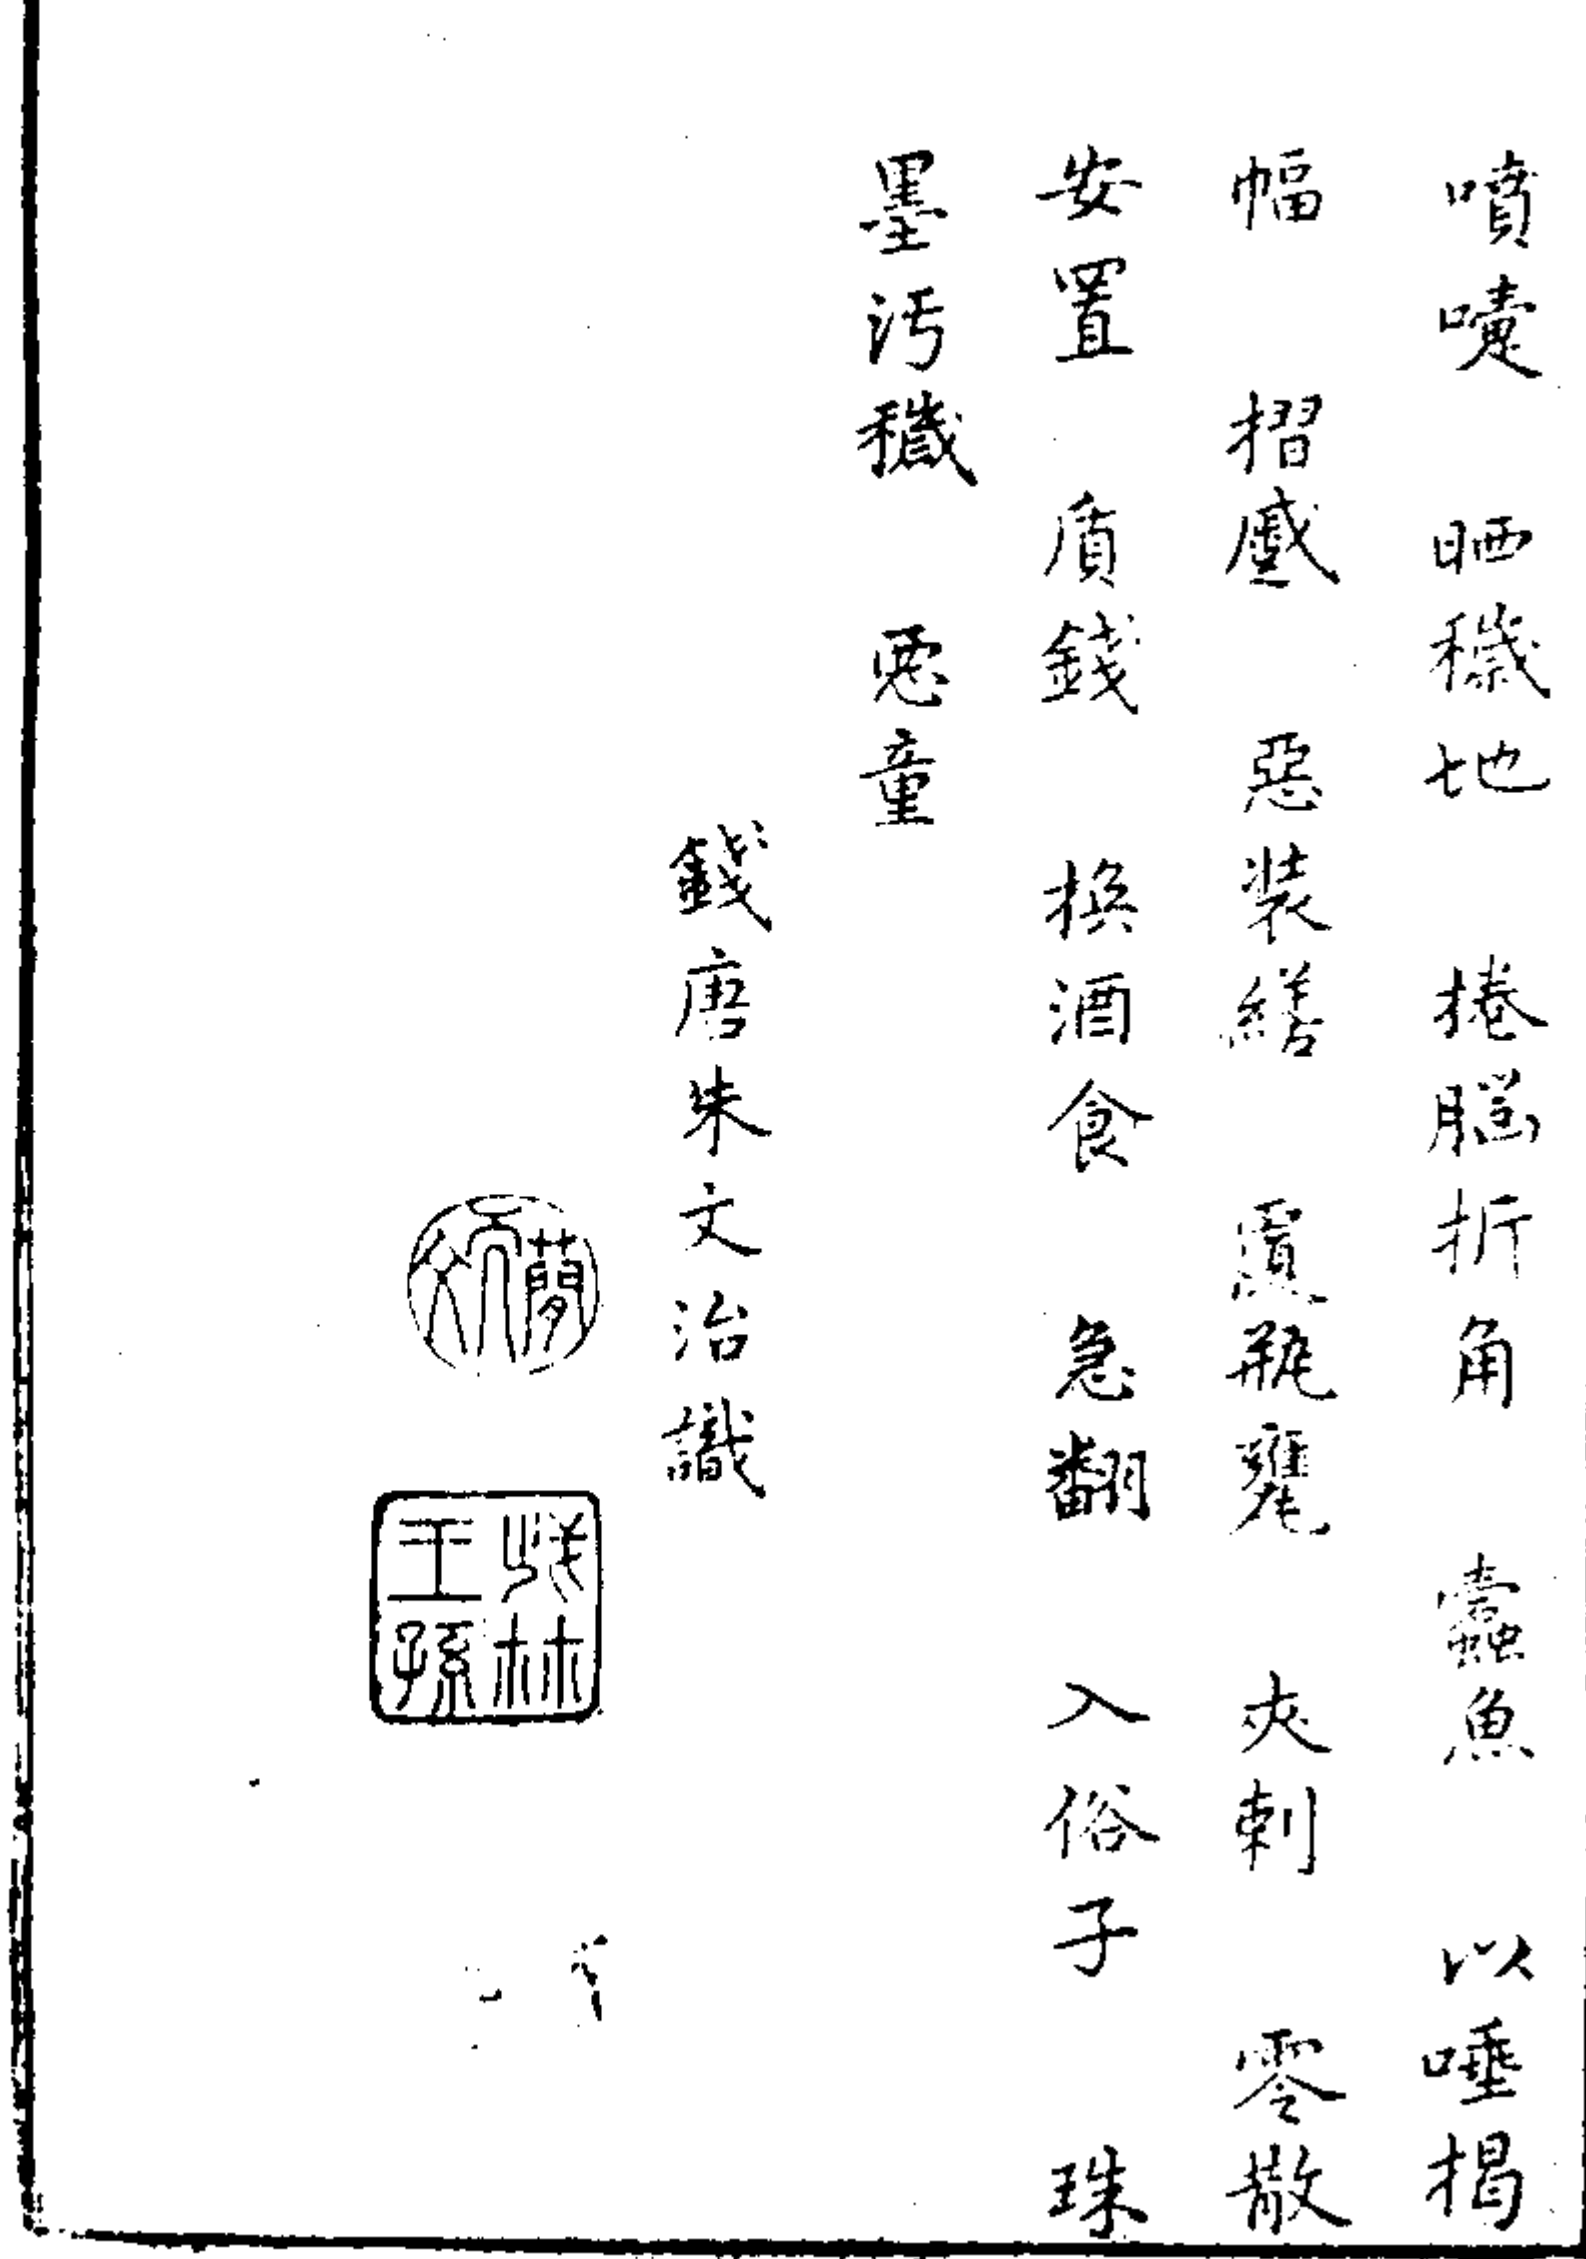 噴嚏　晒穢地　捲腦折角　蠧魚　以唾揭
幅　摺蹙　惡裝繕　置瓶甕　夾刺　零散
安置　質錢　換酒食　急翻　入俗子　珠
墨汚穢　惡童
錢唐朱文治識
玉林
王孫